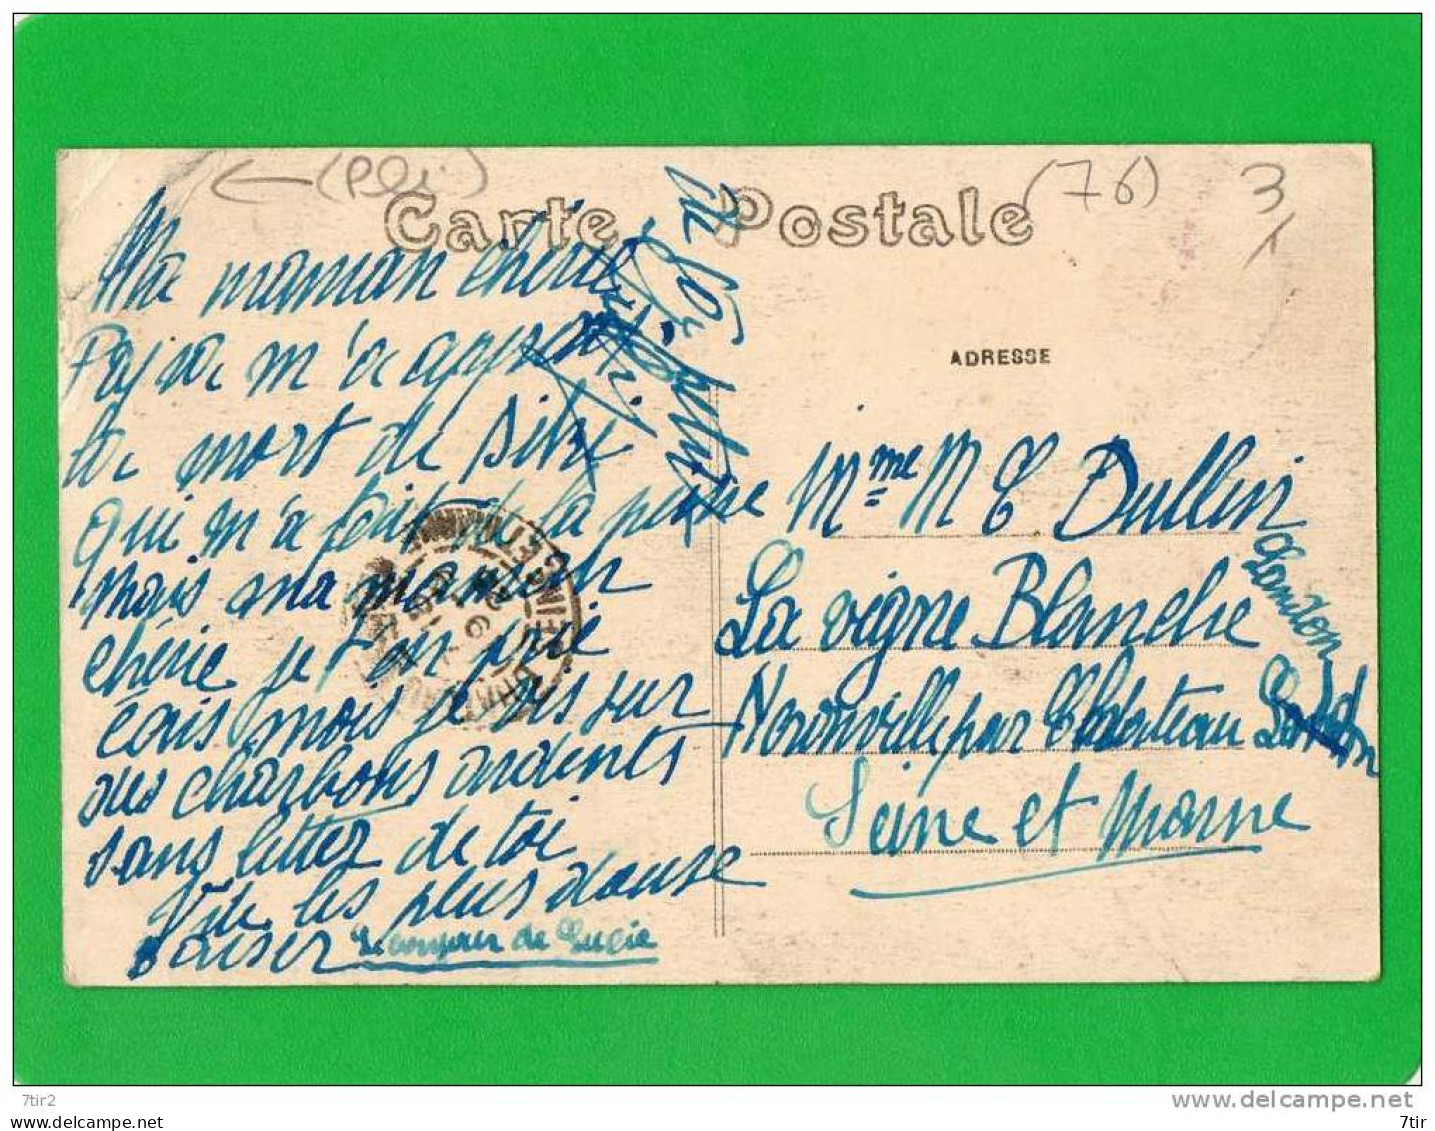 (Pli)
Carte Postale
(76)
3
Ma maman chérie
m'a appris
la mort de
qui m'a fait de la peine
mais ma maman
chérie je t'en prie
écris mois je suis sur
des charbons ardents
sans lettre de toi
les plus douse
baiser
de Lucie
ADRESSE
Mme M C Dullin
La Vigne Blanche
Noronville par Château Landon
Seine et Marne
7tir2
www.delcampe.net
7tir